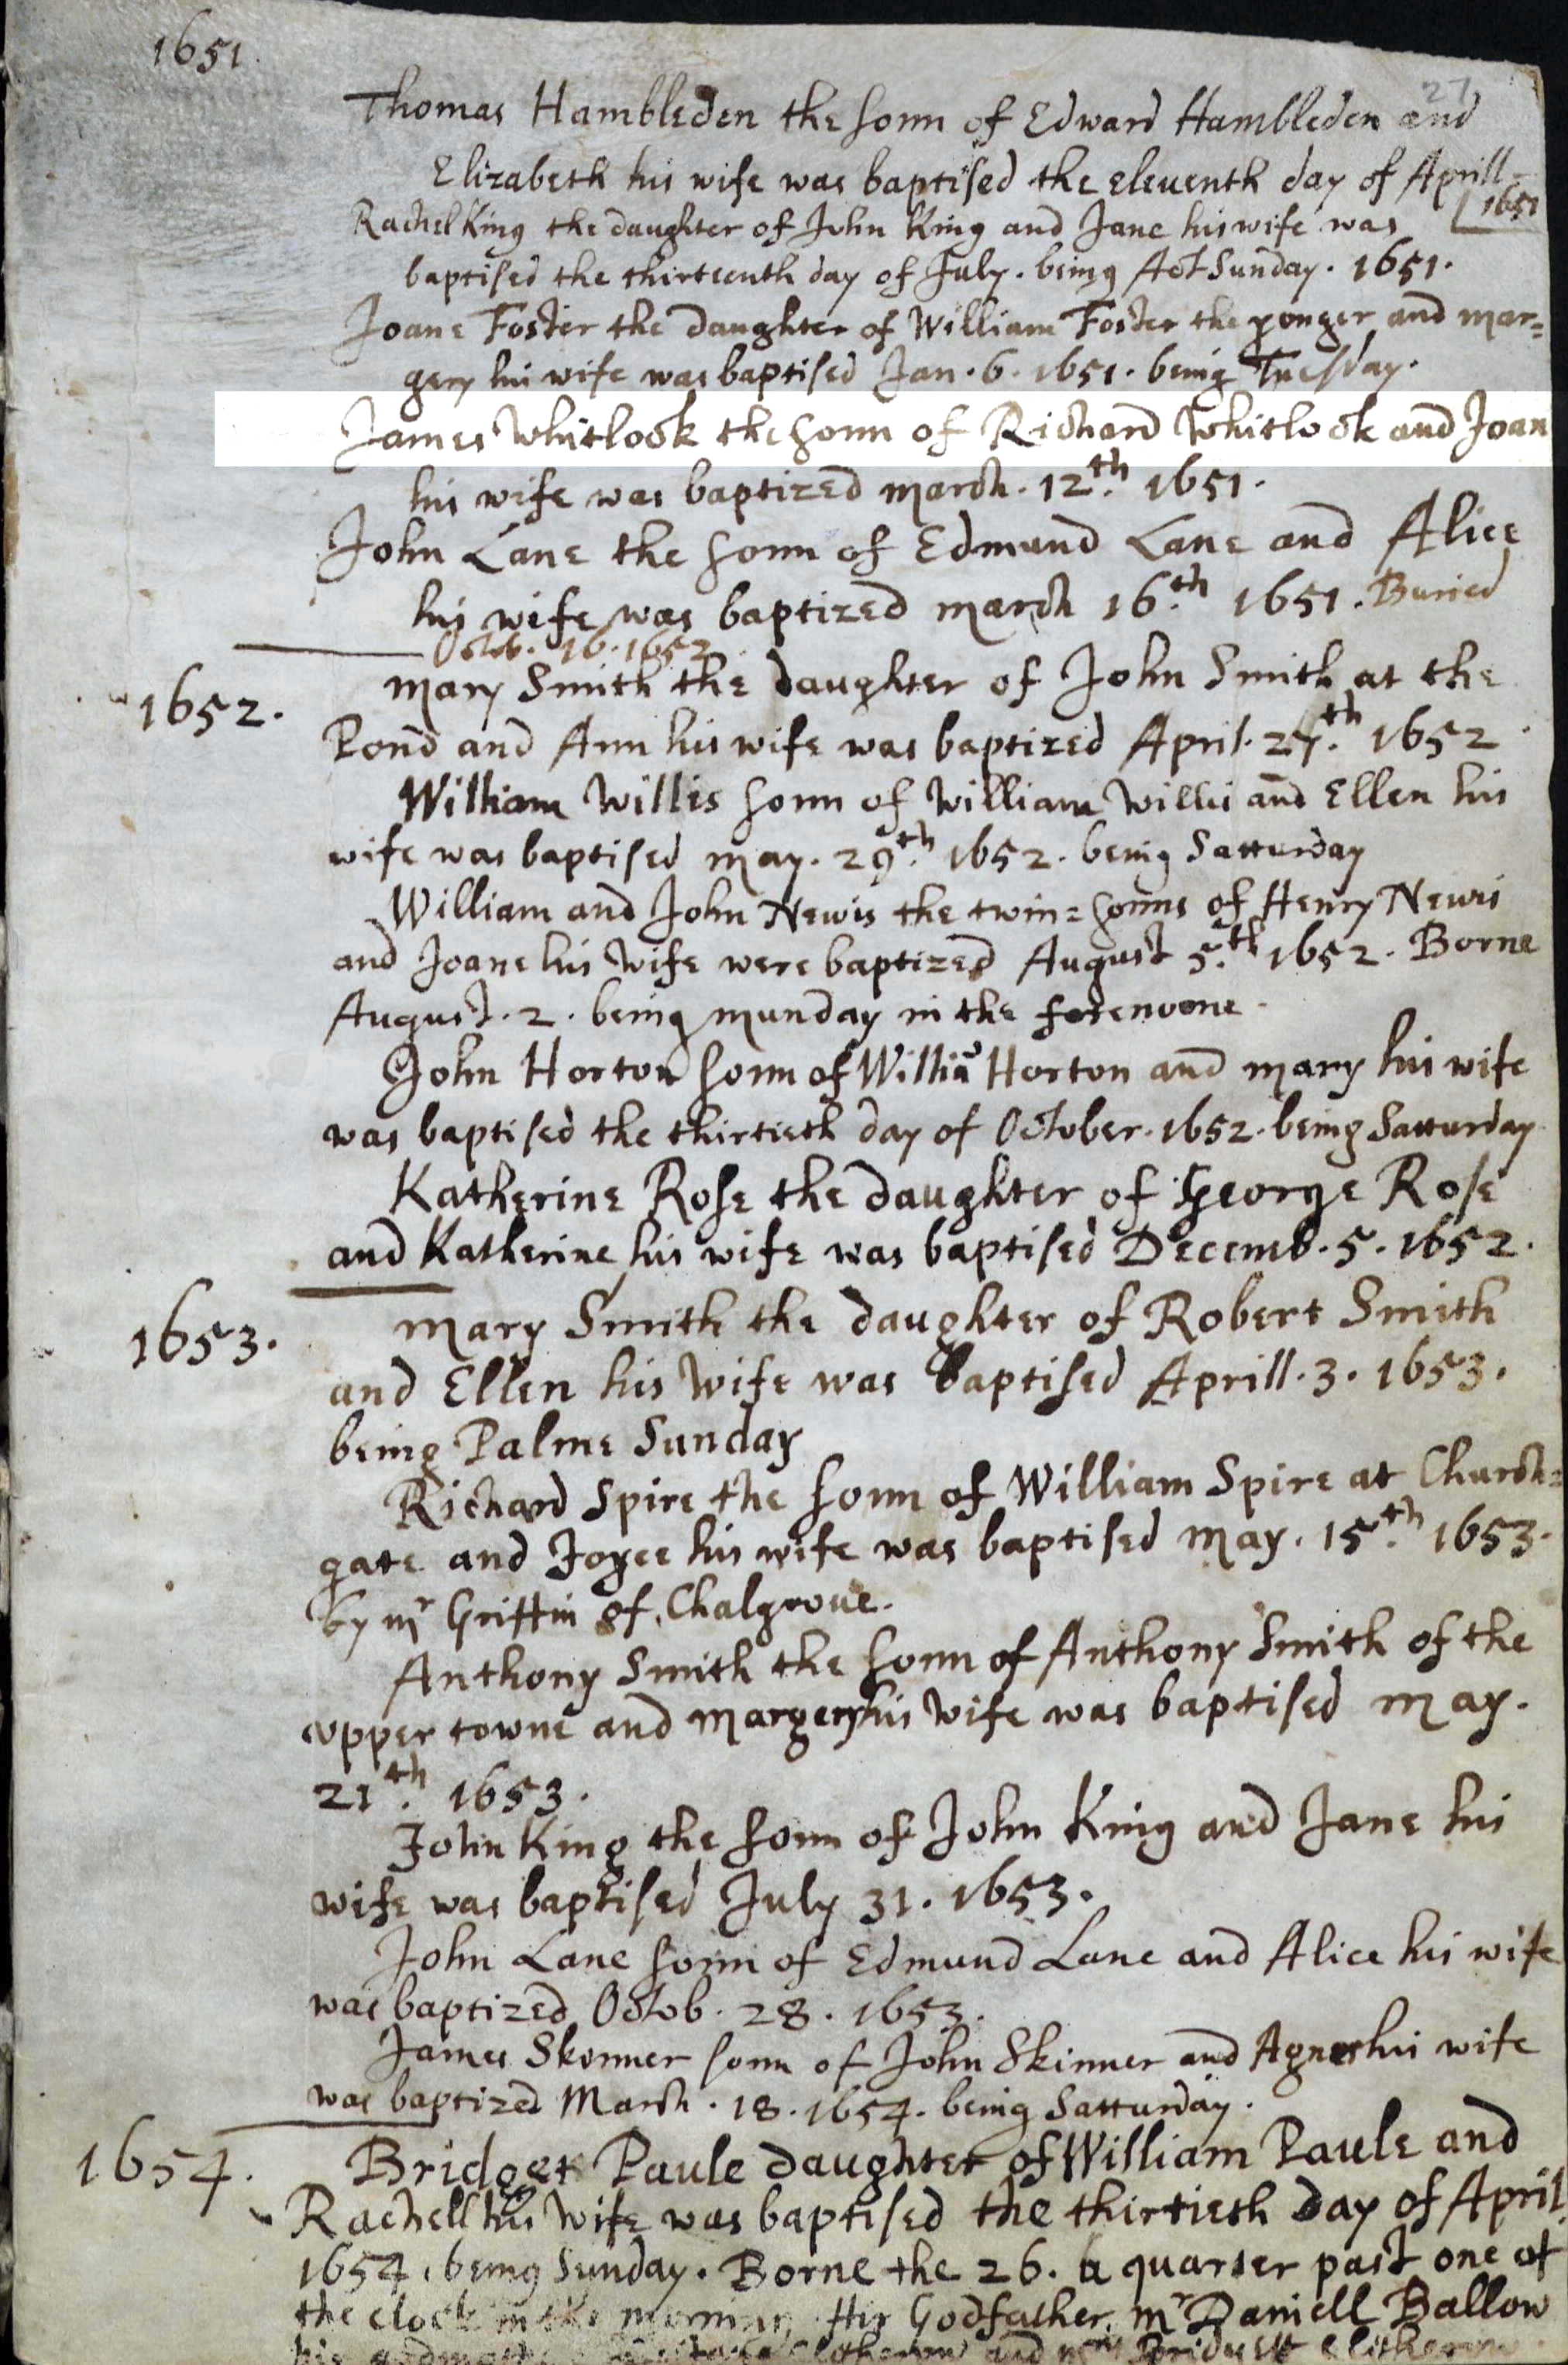 1651.
27
Thomas Hambleden the sonn of Edward Hambleden and
Elizabeth his wife was baptised the eleuenth day of Aprill
1651
Rachel King the daughter of John King and Jane his wife was
baptised the thirteenth day of July. being Act Sunday. 1651.
Joane Foster the daughter of William Foster the yonger and mar=
gery his wife was baptised Jan. 6. 1651. being Tuesday.
James Whitlock the sonn of Richard Whitlock and Joan
his wife was baptized march. 12th. 1651.
John Lane the sonn of Edmund Lane and Alice
his wife was baptized march 16th. 1651. Buried
Octob. 16. 1652
mary Smith the daughter of John Smith at the
1652.
Pond and Ann his wife was baptized April. 27th. 1652
William Willis sonn of William Willis and Ellen his
wife was baptised may. 29th. 1652. being Satturday
William and John Newis the twin=sonns of Henry Newis
and Joane his Wife were baptized August 5th. 1652. Borne
August. 2. being munday in the forenoone.
John Horton sonn of Willia Horton and mary his wife
was baptised the thirtieth day of October. 1652. being Satturday
Katherine Rose the daughter of George Rose
and Katherine his wife was baptised Decemb. 5. 1652.
1653.
mary Smith the daughter of Robert Smith
and Ellen his Wife was baptised Aprill. 3. 1653.
being Palme Sunday
Richard Spire the sonn of William Spire at Church=
gate and Joyce his wife was baptised may. 15th. 1653.
by mr Griffin of Chalgroue.
Anthony Smith the sonn of Anthony Smith of the
vpper towne and margery his Wife was baptised may.
21th. 1653.
John King the sonn of John King and Jane his
wife was baptised July 31. 1653.
John Lane sonn of Edmund Lane and Alice his wife
was baptized Octob. 28. 1653.
James Skinner sonn of John Skinner and Agnes his wife
was baptized March. 18. 1654. being Satturday.
1654.
Bridget Paule daughter of William Paule and
Rachell his Wife was baptised the thirtieth day of April
1654. being Sunday. Borne the 26. a quarter past one of
the clock in the morning. Her Godfather mr Daniell Ballow
his and Bridgett